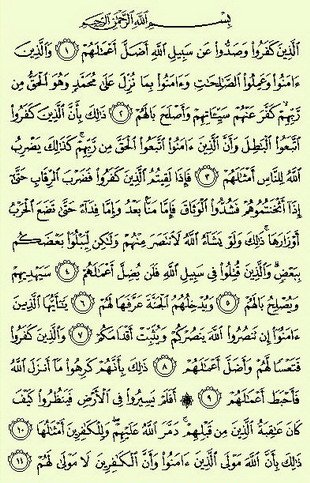 بِسْمِ اللَّهِ الرَّحْمَٰنِ الرَّحِيمِ
الَّذِينَ كَفَرُوا وَصَدُّوا عَن سَبِيلِ اللَّهِ أَضَلَّ أَعْمَالَهُمْ ﴿١﴾ وَالَّذِينَ
ءَامَنُوا وَعَمِلُوا الصَّالِحَاتِ وَءَامَنُوا بِمَا نُزِّلَ عَلَىٰ مُحَمَّدٍ وَهُوَ الْحَقُّ مِن
رَّبِّهِمْ كَفَّرَ عَنْهُمْ سَيِّئَاتِهِمْ وَأَصْلَحَ بَالَهُمْ ﴿٢﴾ ذَٰلِكَ بِأَنَّ الَّذِينَ كَفَرُوا
اتَّبَعُوا الْبَاطِلَ وَأَنَّ الَّذِينَ ءَامَنُوا اتَّبَعُوا الْحَقَّ مِن رَّبِّهِمْ كَذَٰلِكَ يَضْرِبُ
اللَّهُ لِلنَّاسِ أَمْثَالَهُمْ ﴿٣﴾ فَإِذَا لَقِيتُمُ الَّذِينَ كَفَرُوا فَضَرْبَ الرِّقَابِ حَتَّىٰ
إِذَا أَثْخَنتُمُوهُمْ فَشُدُّوا الْوَثَاقَ فَإِمَّا مَنًّا بَعْدُ وَإِمَّا فِدَاءً حَتَّىٰ تَضَعَ الْحَرْبُ
أَوْزَارَهَا ذَٰلِكَ وَلَوْ يَشَاءُ اللَّهُ لَانتَصَرَ مِنْهُمْ وَلَٰكِن لِّيَبْلُوَا بَعْضَكُم
بِبَعْضٍ وَالَّذِينَ قُتِلُوا فِي سَبِيلِ اللَّهِ فَلَن يُضِلَّ أَعْمَالَهُمْ ﴿٤﴾ سَيَهْدِيهِمْ
وَيُصْلِحُ بَالَهُمْ ﴿٥﴾ وَيُدْخِلُهُمُ الْجَنَّةَ عَرَّفَهَا لَهُمْ ﴿٦﴾ يَا أَيُّهَا الَّذِينَ
ءَامَنُوا إِن تَنصُرُوا اللَّهَ يَنصُرْكُمْ وَيُثَبِّتْ أَقْدَامَكُمْ ﴿٧﴾ وَالَّذِينَ كَفَرُوا
فَتَعْسًا لَّهُمْ وَأَضَلَّ أَعْمَالَهُمْ ﴿٨﴾ ذَٰلِكَ بِأَنَّهُمْ كَرِهُوا مَا أَنزَلَ اللَّهُ
فَأَحْبَطَ أَعْمَالَهُمْ ﴿٩﴾ ۞ أَفَلَمْ يَسِيرُوا فِي الْأَرْضِ فَيَنظُرُوا كَيْفَ
كَانَ عَاقِبَةُ الَّذِينَ مِن قَبْلِهِمْ دَمَّرَ اللَّهُ عَلَيْهِمْ وَلِلْكَافِرِينَ أَمْثَالُهَا ﴿١٠﴾
ذَٰلِكَ بِأَنَّ اللَّهَ مَوْلَى الَّذِينَ ءَامَنُوا وَأَنَّ الْكَافِرِينَ لَا مَوْلَىٰ لَهُمْ ﴿١١﴾